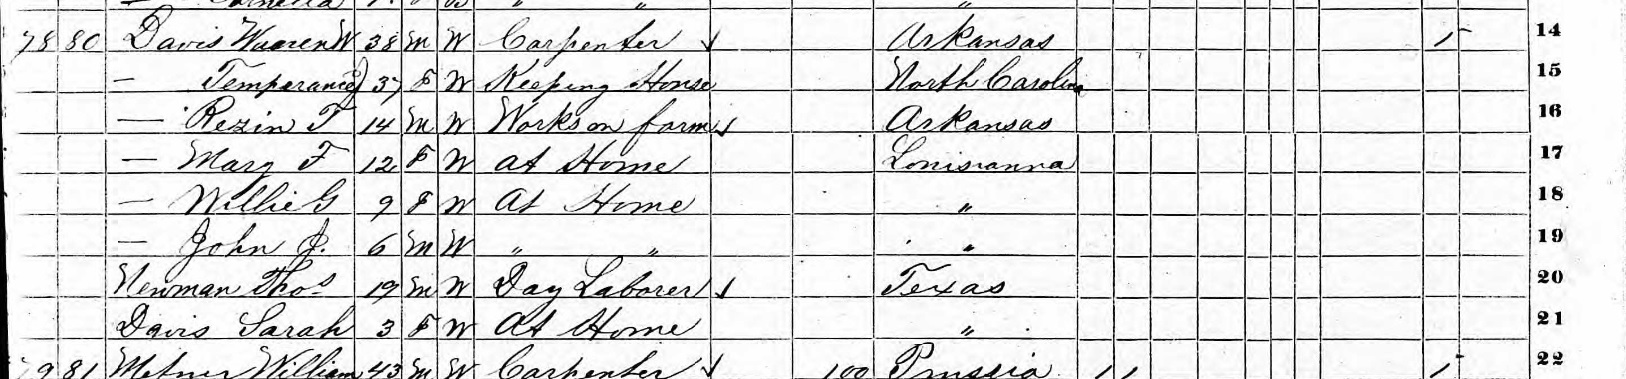 Cornelia " "
78 80 Davis Warren W 38 M W Carpenter Arkansas 1 14
— Temperance 37 F W Keeping House North Carolina 15
— Rezin T 14 M W Works on farm Arkansas 16
— Mary F 12 F W At Home Louisianna 17
— Willie G 9 F W At Home " 18
— John J. 6 M W " " " 19
Newman Thos 19 M W Day Laborer Texas 20
Davis Sarah 3 F W At Home " 21
79 81 William 43 M W Carpenter 100 Prussia 1 1 1 22